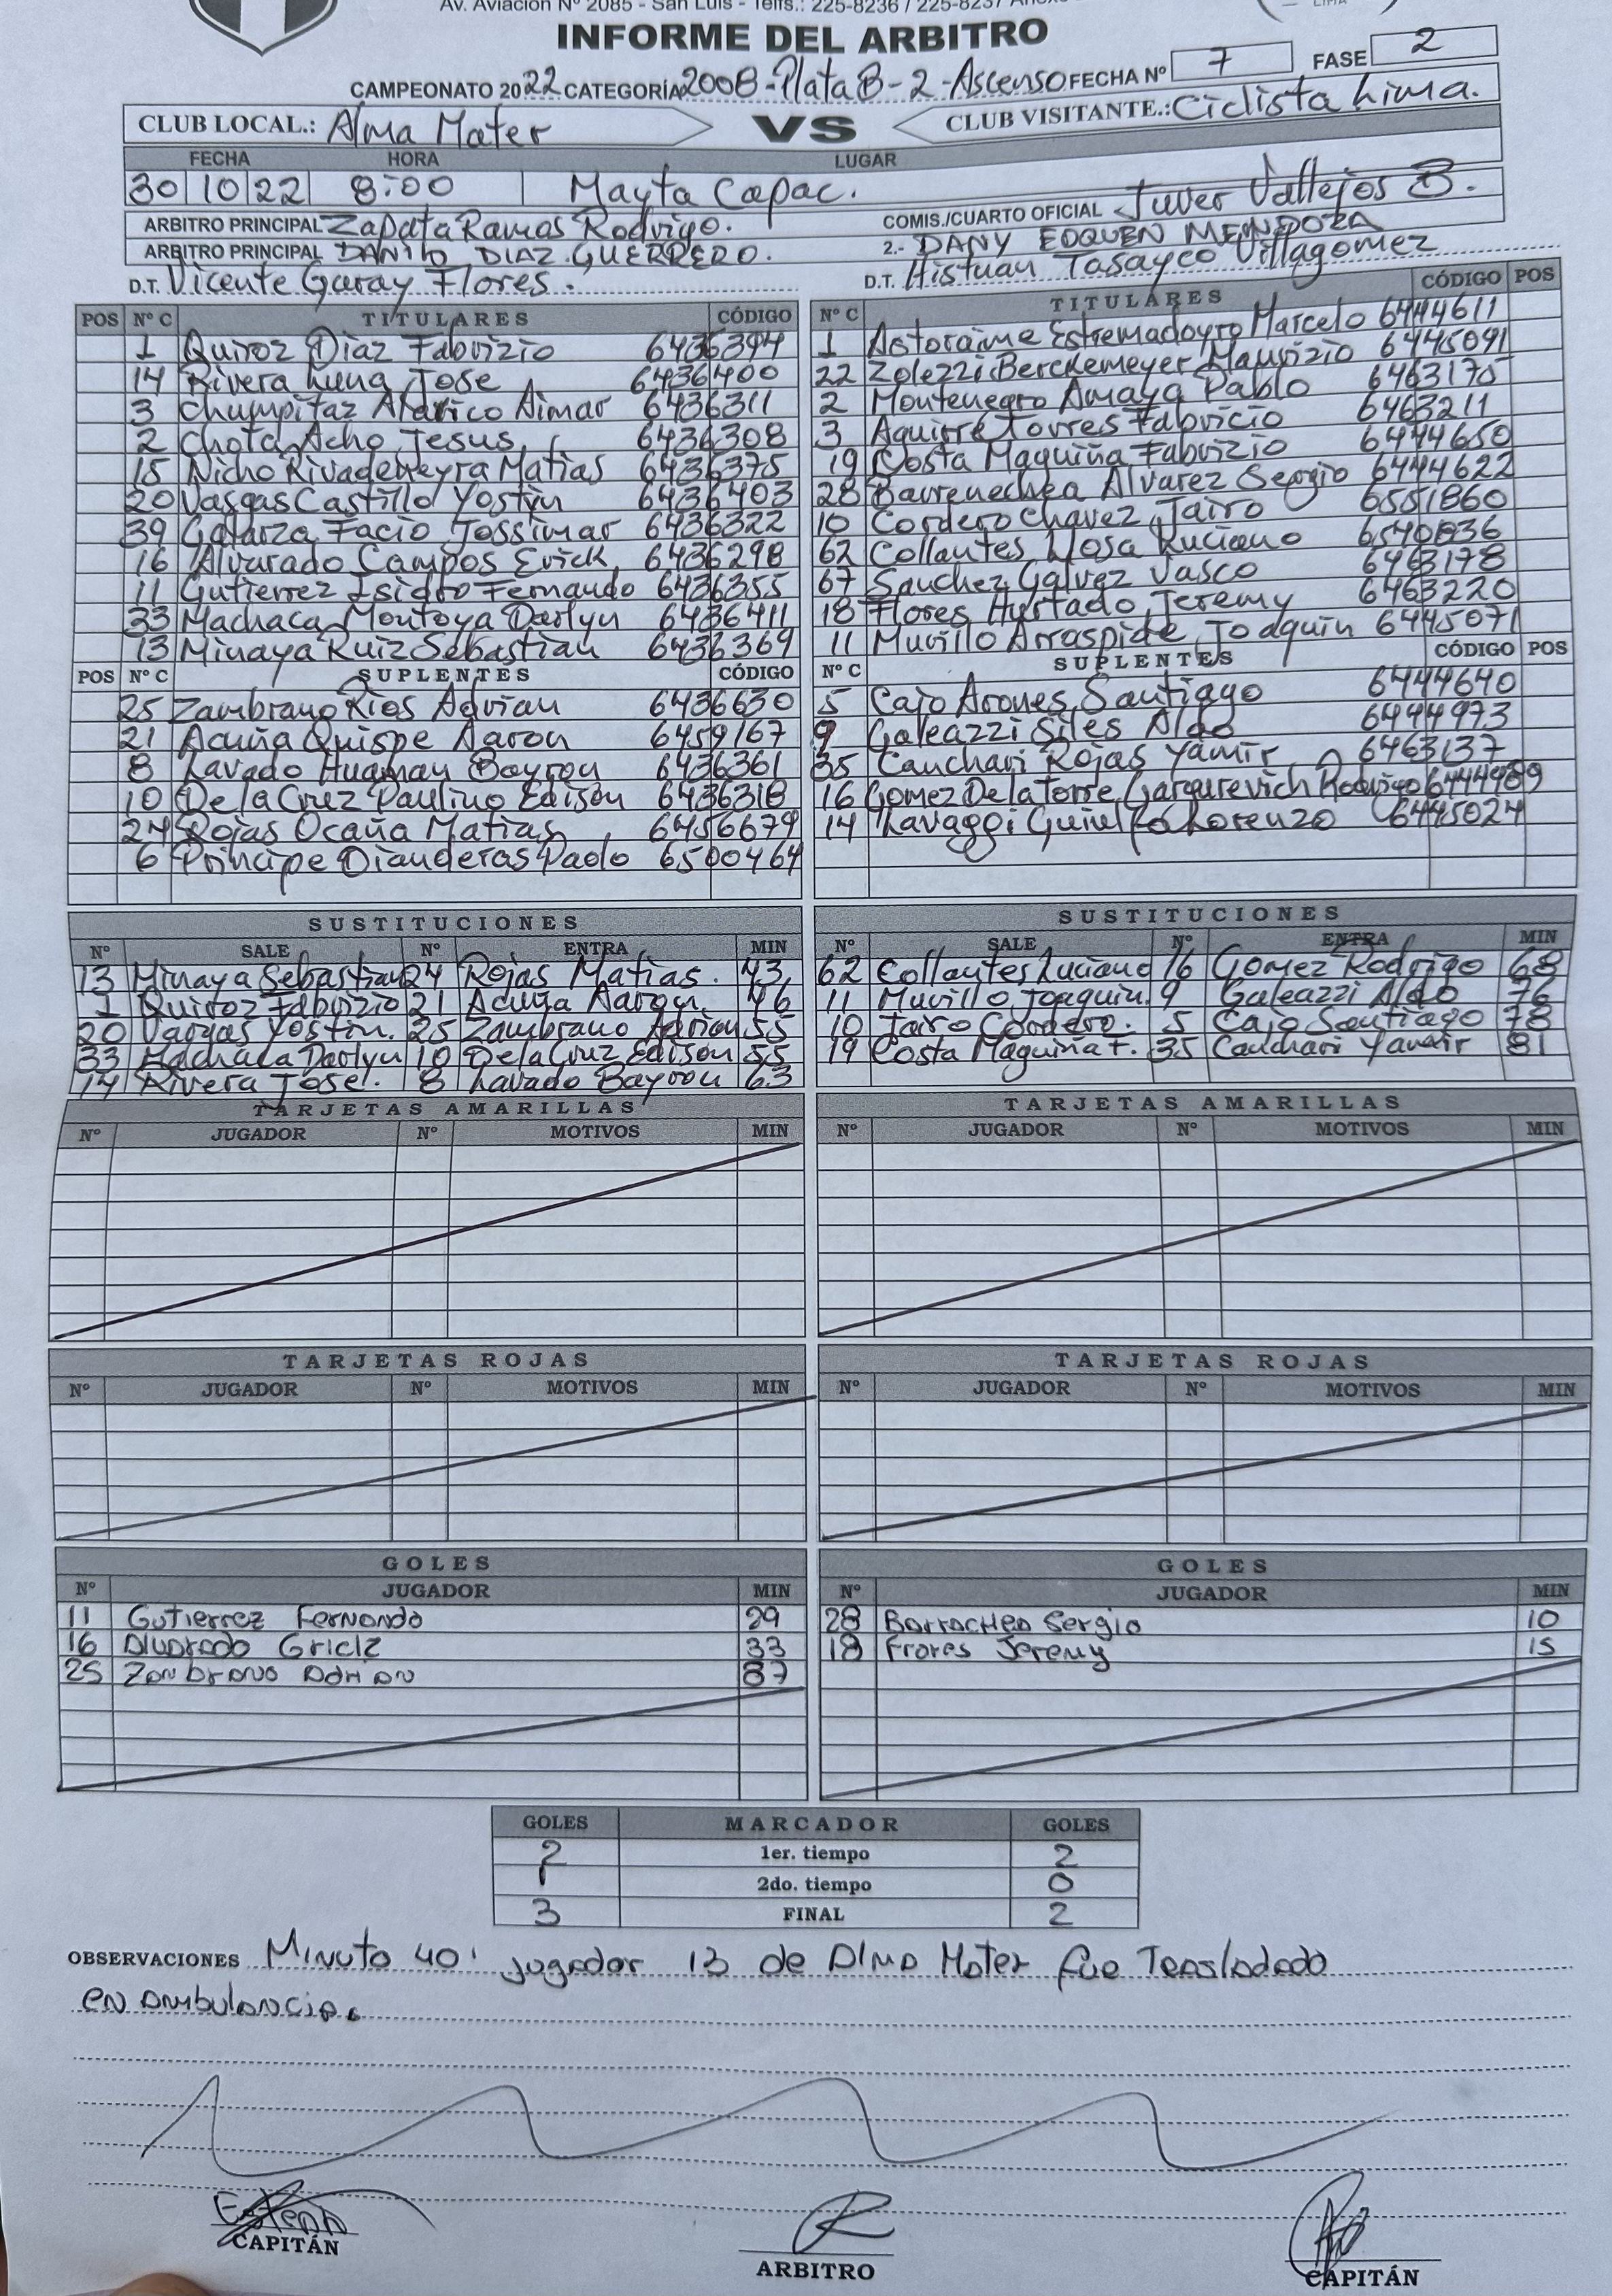 Av. Aviación Nº 2085 - San Luis - Telfs.: 225-8236 / 225-8237
INFORME DEL ARBITRO
CAMPEONATO 2022 CATEGORÍA 2008-Plata B-2-Ascenso FECHA Nº 7 FASE 2
CLUB LOCAL.: Alma Mater VS CLUB VISITANTE.: Ciclista Lima.
FECHA HORA LUGAR
30 10 22 8:00 Mayta Capac.
ARBITRO PRINCIPAL Zapata Ramos Rodrigo. COMIS./CUARTO OFICIAL Juver Vallejos B.
ARBITRO PRINCIPAL DANILO DIAZ GUERRERO. 2.- DANY EDQUEN MENDOZA
D.T. Vicente Garay Flores. D.T. Histuan Tasayco Villagomez
POS Nº C TITULARES CÓDIGO
1 Quiroz Diaz Fabrizio 6436394
14 Rivera Luna Jose 6436400
3 Chumpitaz Alarico Aimar 6436311
2 Chota Acho Jesus 6436308
15 Nicho Rivadeneyra Matias 6436375
20 Vasgas Castillo Yostin 6436403
39 Galarza Facio Jossimar 6436322
16 Alvarado Campos Erick 6436298
11 Gutierrez Isidro Fernando 6436355
33 Machaca Montoya Darlyn 6436411
13 Minaya Ruiz Sebastian 6436369
POS Nº C SUPLENTES CÓDIGO
25 Zambrano Rios Adrian 6436630
21 Acuña Quispe Aaron 6459167
8 Lavado Huaman Bayron 6436361
10 De la Cruz Paulino Edison 6436318
24 Rojas Ocaña Matias 6456679
6 Principe Dianderas Paolo 6500464
Nº C TITULARES CÓDIGO POS
1 Astoraime Estremadoyro Marcelo 6444611
22 Zolezzi Berckemeyer Maurizio 6445091
2 Montenegro Amaya Pablo 6463175
3 Aguirre Torres Fabricio 6463211
19 Costa Maguiña Fabrizio 6444650
28 Barrenechea Alvarez Sergio 6444622
10 Cordero Chavez Jairo 6551860
62 Collantes Llosa Luciano 6540836
67 Sanchez Galvez Vasco 6463178
18 Flores Hurtado Jeremy 6463220
11 Murillo Arraspide Joaquin 6445071
Nº C SUPLENTES CÓDIGO POS
5 Cajo Arones Santiago 6444640
9 Galeazzi Siles Aldo 6444973
35 Canchari Rojas Yamir 6463137
16 Gomez De la Torre Gargurevich Rodrigo 6444989
14 Lavaggi Guiulfo Lorenzo 6445024
SUSTITUCIONES
Nº SALE Nº ENTRA MIN
13 Minaya Sebastian 24 Rojas Matias. 43
1 Quiroz Fabrizio 21 Acuña Aaron. 46
20 Vargas Yostin. 25 Zambrano Adrian 55
33 Machaca Darlyn 10 De la Cruz Edison 55
14 Rivera Jose. 8 Lavado Bayron 63
SUSTITUCIONES
Nº SALE Nº ENTRA MIN
62 Collantes Luciano 16 Gomez Rodrigo 68
11 Murillo Joaquin. 9 Galeazzi Aldo 76
10 Jairo Cordero. 5 Cajo Santiago 78
19 Costa Maguiña F. 35 Canchari Yamir 81
TARJETAS AMARILLAS
Nº JUGADOR Nº MOTIVOS MIN
TARJETAS AMARILLAS
Nº JUGADOR Nº MOTIVOS MIN
TARJETAS ROJAS
Nº JUGADOR Nº MOTIVOS MIN
TARJETAS ROJAS
Nº JUGADOR Nº MOTIVOS MIN
GOLES
Nº JUGADOR MIN
11 Gutierrez Fernando 29
16 Alvarado Erick 33
25 Zambrano Adrian 87
GOLES
Nº JUGADOR MIN
28 Barrachea Sergio 10
18 Frores Jeremy 15
GOLES MARCADOR GOLES
2 1er. tiempo 2
1 2do. tiempo 0
3 FINAL 2
OBSERVACIONES Minuto 40' jugador 13 de Alma Mater fue Trasladado
en ambulancia.
CAPITÁN ARBITRO CAPITÁN